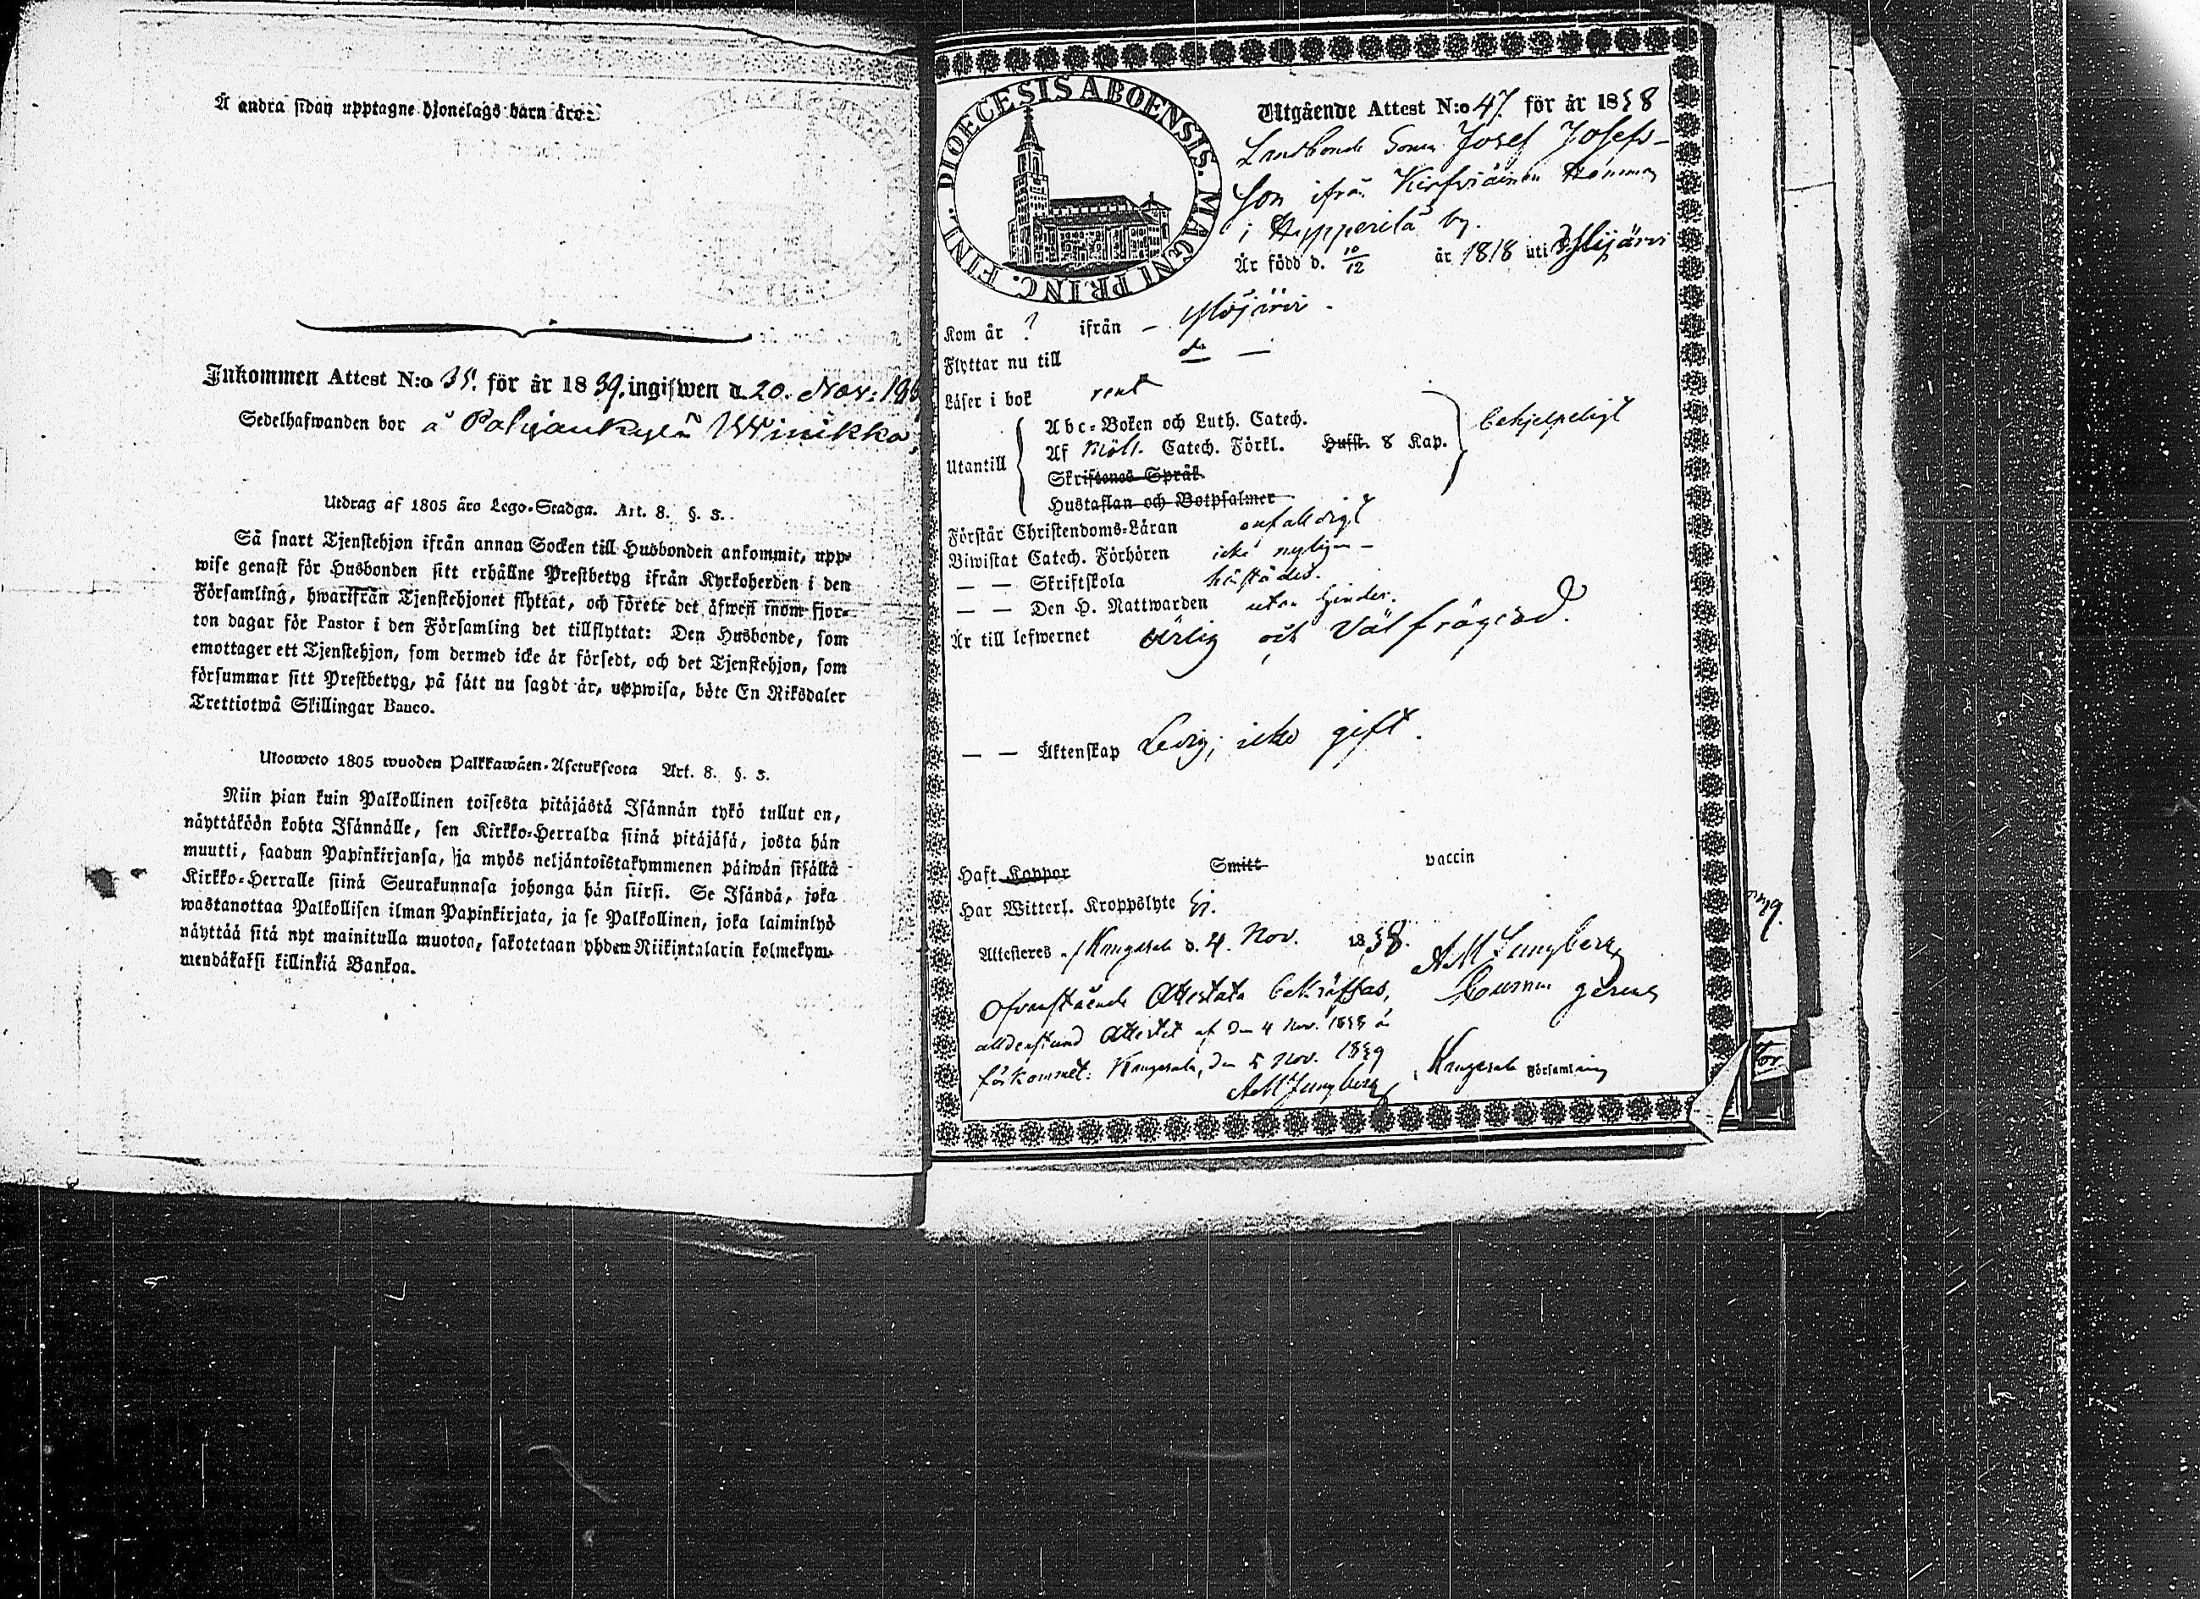 Å andra sidan upptagne hjonelags barn äro:
Inkommen Attest N:o 35. för år 1839. ingifwen d. 20. Nov.
Sedelhafwanden bor å Pohjankylä Winikka
Utdrag af 1805 åra Lego-Stadga. Art. 8. §. 3.
Så snart Tjenstehjon ifrån annan Socken till Husbonden ankommit, upp-
wise genast för Husbonden sitt erhållne Prestbetyg ifrån Kyrkoherden i den
Församling, hwarifrån Tjenstehjonet flyttat, och förete det äfwen inom fjor-
ton dagar för Pastor i den Församling det tillflyttat: Den Husbonde, som
emottager ett Tjenstehjon, som dermed icke är försedt, och det Tjenstehjon, som
försummar sitt Prestbetyg, på sätt nu sagdt är, uppwisa, böte En Riksdaler
Trettiotwå Skillingar Banco.
Ulosweto 1805 wuoden Palkkawäen-Asetuksesta Art. 8. §. 3.
Niin pian kuin Palkollinen toisesta pitäjästä Isännän tykö tullut on,
näyttäköön kohta Isännälle, sen Kirkko-Herralda siinä pitäjäsä, josta hän
muutti, saadun Papinkirjansa, ja myös neljäntoistakymmenen päiwän sisällä
Kirkko-Herralle siinä Seurakunnasa johonga hän siirsi. Se Isändä, joka
wastanottaa Palkollisen ilman Papinkirjata, ja se Palkollinen, joka laiminlyö
näyttää sitä nyt mainitulla muotoa, sakotetaan yhdem Riikintalarin kolmekym-
mendäkaksi killinkiä Bankoa.
DIOECESIS ABOENSIS. MAGNI PRINC. FINL.
Utgående Attest N:o 47. för år 1838
Landbonde Sonen Josef Josefs-
Son ifrån Hemman
i by.
Är född d. 10/12 år 1818 uti Ylöjärvi
Kom år ? ifrån – Ylöjärvi –
Flyttar nu till do —
Läser i bok rent
Utantill
Abc-Boken och Luth. Catech.
Af Möll. Catech. Förkl. Husst. 8 Kap.
behjelpeligt
Skriftenes Språk
Hustaflan och Botpsalmer
Förstår Christendoms-Läran enfalldigt
Biwistat Catech. Förhören icke nyligen –
— — Skriftskola härstädes.
— — Den H. Nattwarden utan hinder.
Är till lefwernet ärlig och välfrägdad.
— — Äktenskap Ledig; icke gift.
Haft Koppor Smitt vaccin
Har Witterl. Kroppslyte Ej.
Attesteras af Kangasala d. 4. Nov. 1838.
A M Ljungberg
Ofvanstående Attestata bekräftas,
alldenstund Attestet af den 4 Nov. 1838 är
förkommet: Kangasala, den 5 Nov. 1839
A M Ljungberg
i Kangasala Församling